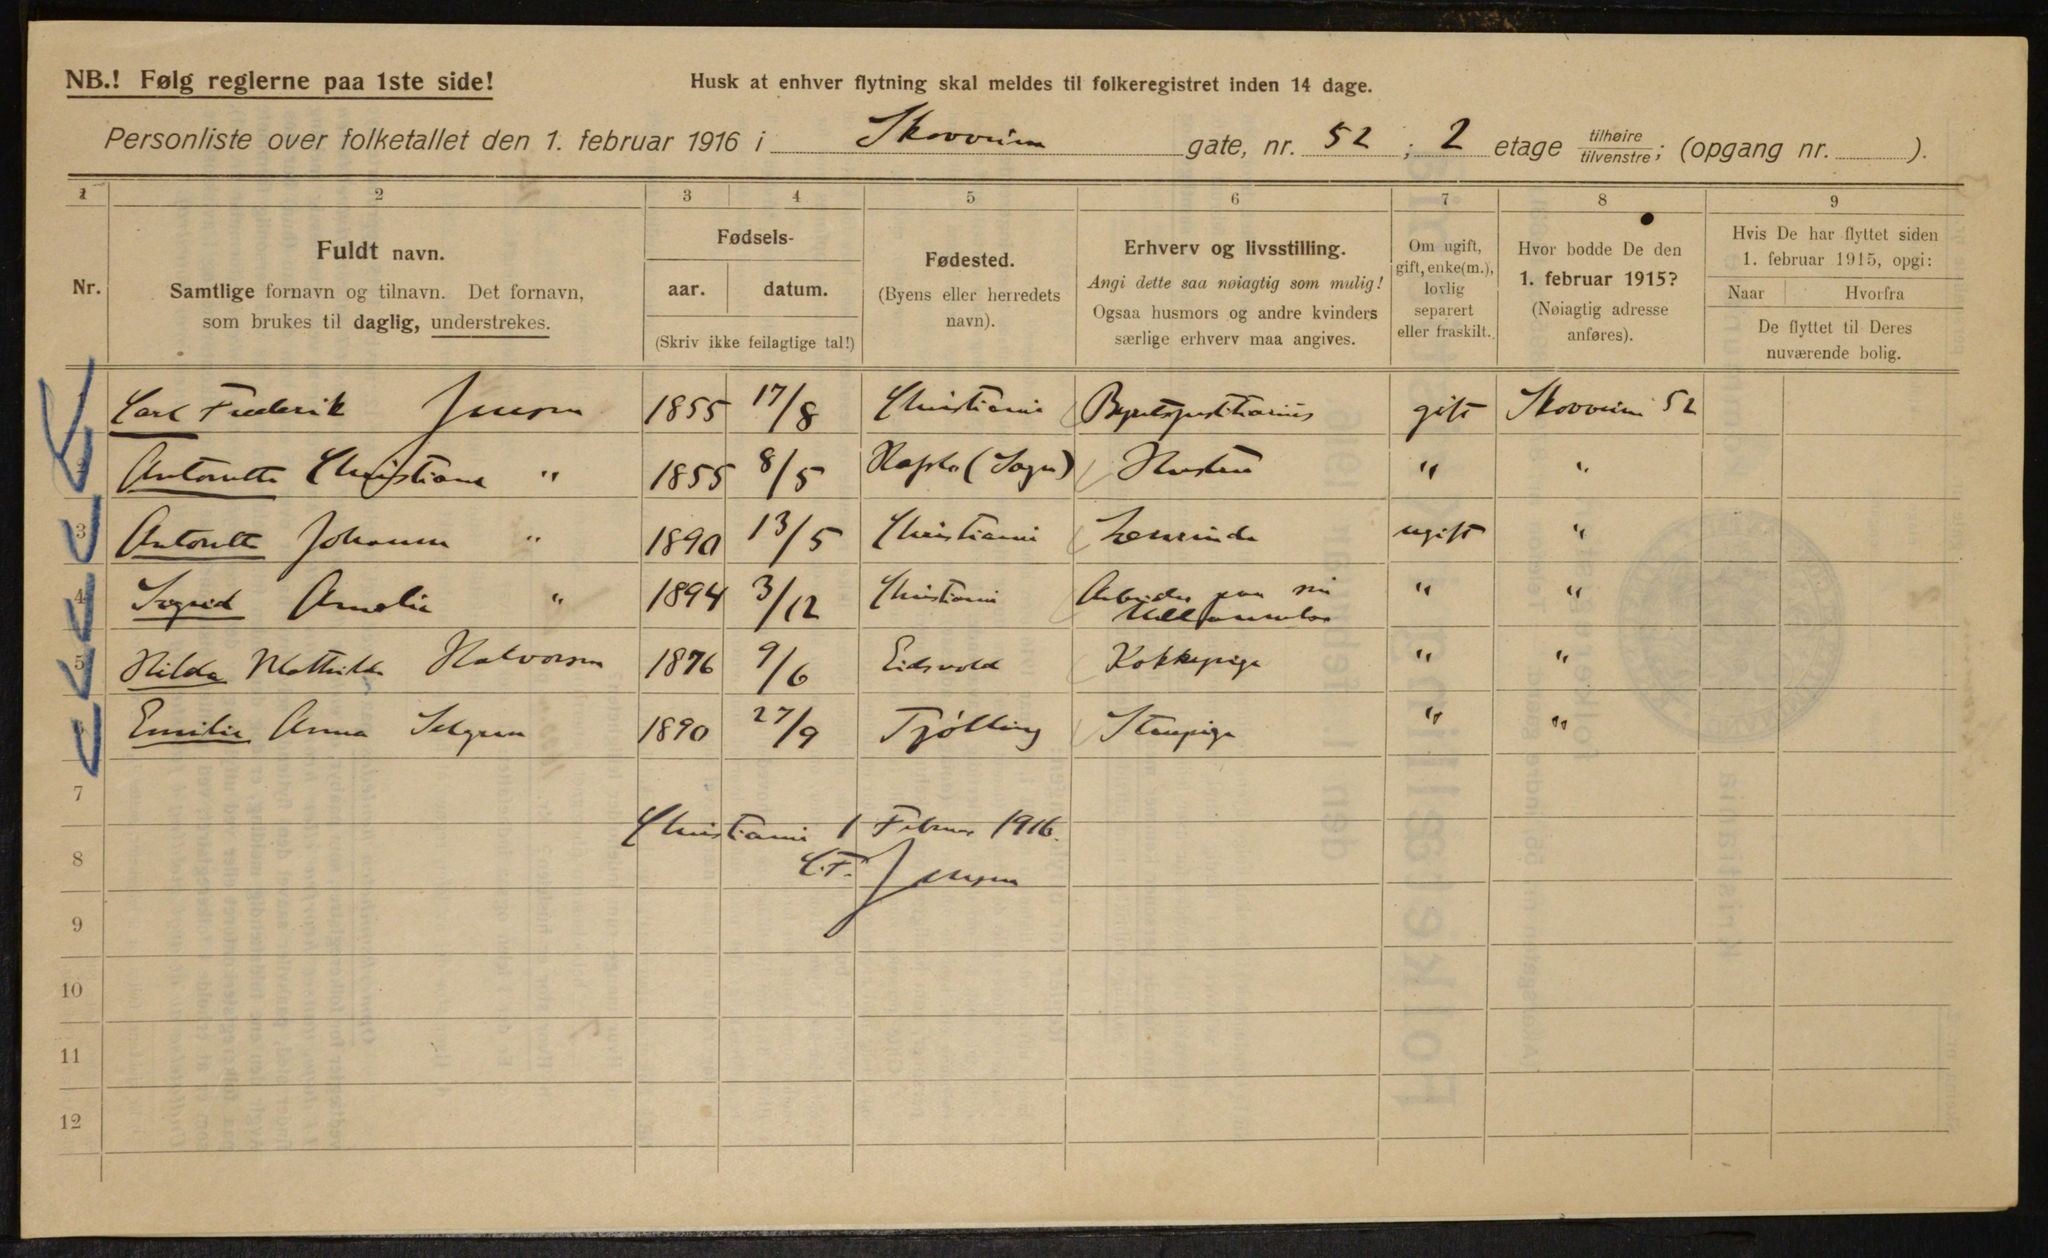 NB.! Følg reglerne paa 1ste side!
Husk at enhver flytning skal meldes til folkeregistret inden 14 dage.
Personliste over folketallet den 1. februar 1916 i Skovveien gate, nr. 52; 2 etage tilhøire/tilvenstre; (opgang nr. ).
1 2 3 4 5 6 7 8 9
Nr.
Fuldt navn.
Samtlige fornavn og tilnavn. Det fornavn,
som brukes til daglig, understrekes.
Fødsels-
aar. datum.
(Skriv ikke feilagtige tal!)
Fødested.
(Byens eller herredets
navn).
Erhverv og livsstilling.
Angi dette saa nøiagtig som mulig!
Ogsaa husmors og andre kvinders
særlige erhverv maa angives.
Om ugift,
gift, enke(m.),
lovlig
separert
eller fraskilt.
Hvor bodde De den
1. februar 1915?
(Nøiagtig adresse
anføres).
Hvis De har flyttet siden
1. februar 1915, opgi:
Naar Hvorfra
De flyttet til Deres
nuværende bolig.
Carl Frederik Jensen 1855 17/8 Christiania Byretsjustitiarius gift Skovveien 52
2 Antonette Christiane " 1855 8/5 Hafslo (Sogn) Hustru " "
3 Antonette Johanne " 1890 13/5 Christiania ugift "
4 Sigrid Amalie " 1894 3/12 Christiania " "
5 Hilda Mathilde Halvorsen 1876 9/6 Eidsvold Kokkepige " "
Emilie Anna 1890 27/9 Tjølling Stuepige " "
7
Christiania 1 Februar 1916.
8
C.F. Jensen
9
10
11
12